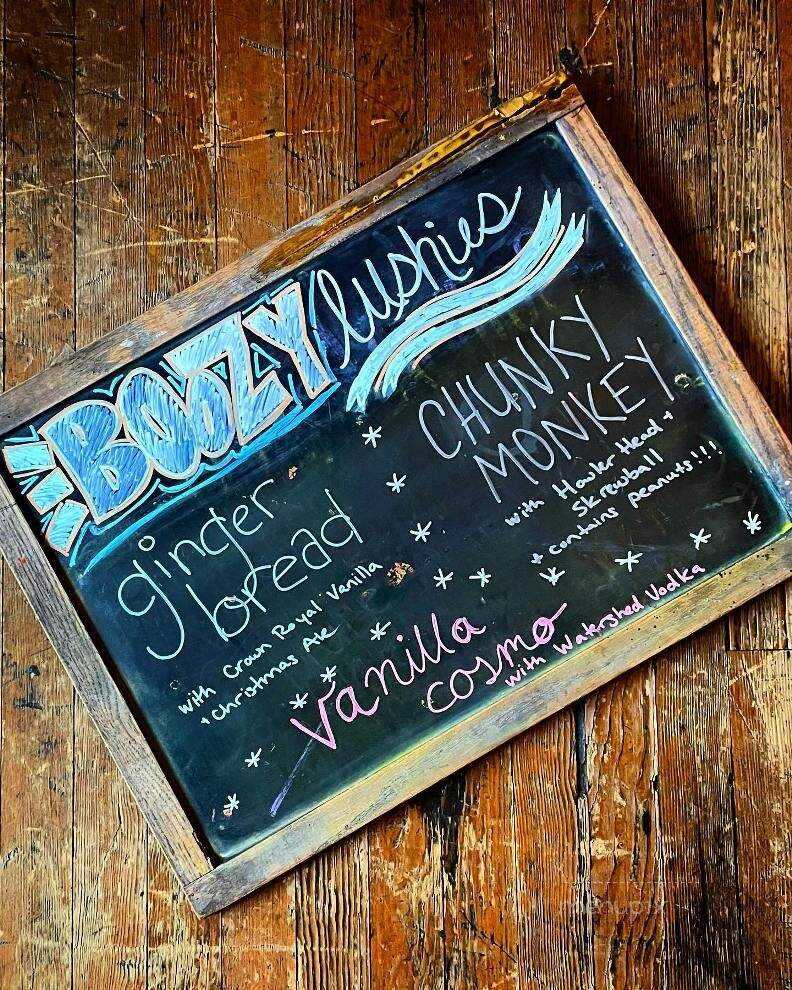 BOOZY lushies
CHUNKY
MONKEY
with Howler Head +
Skrewball
* contains peanuts!!!
ginger
bread
with Crown Royal Vanilla
+ Christmas Ale
vanilla
cosmo
with Watershed Vodka